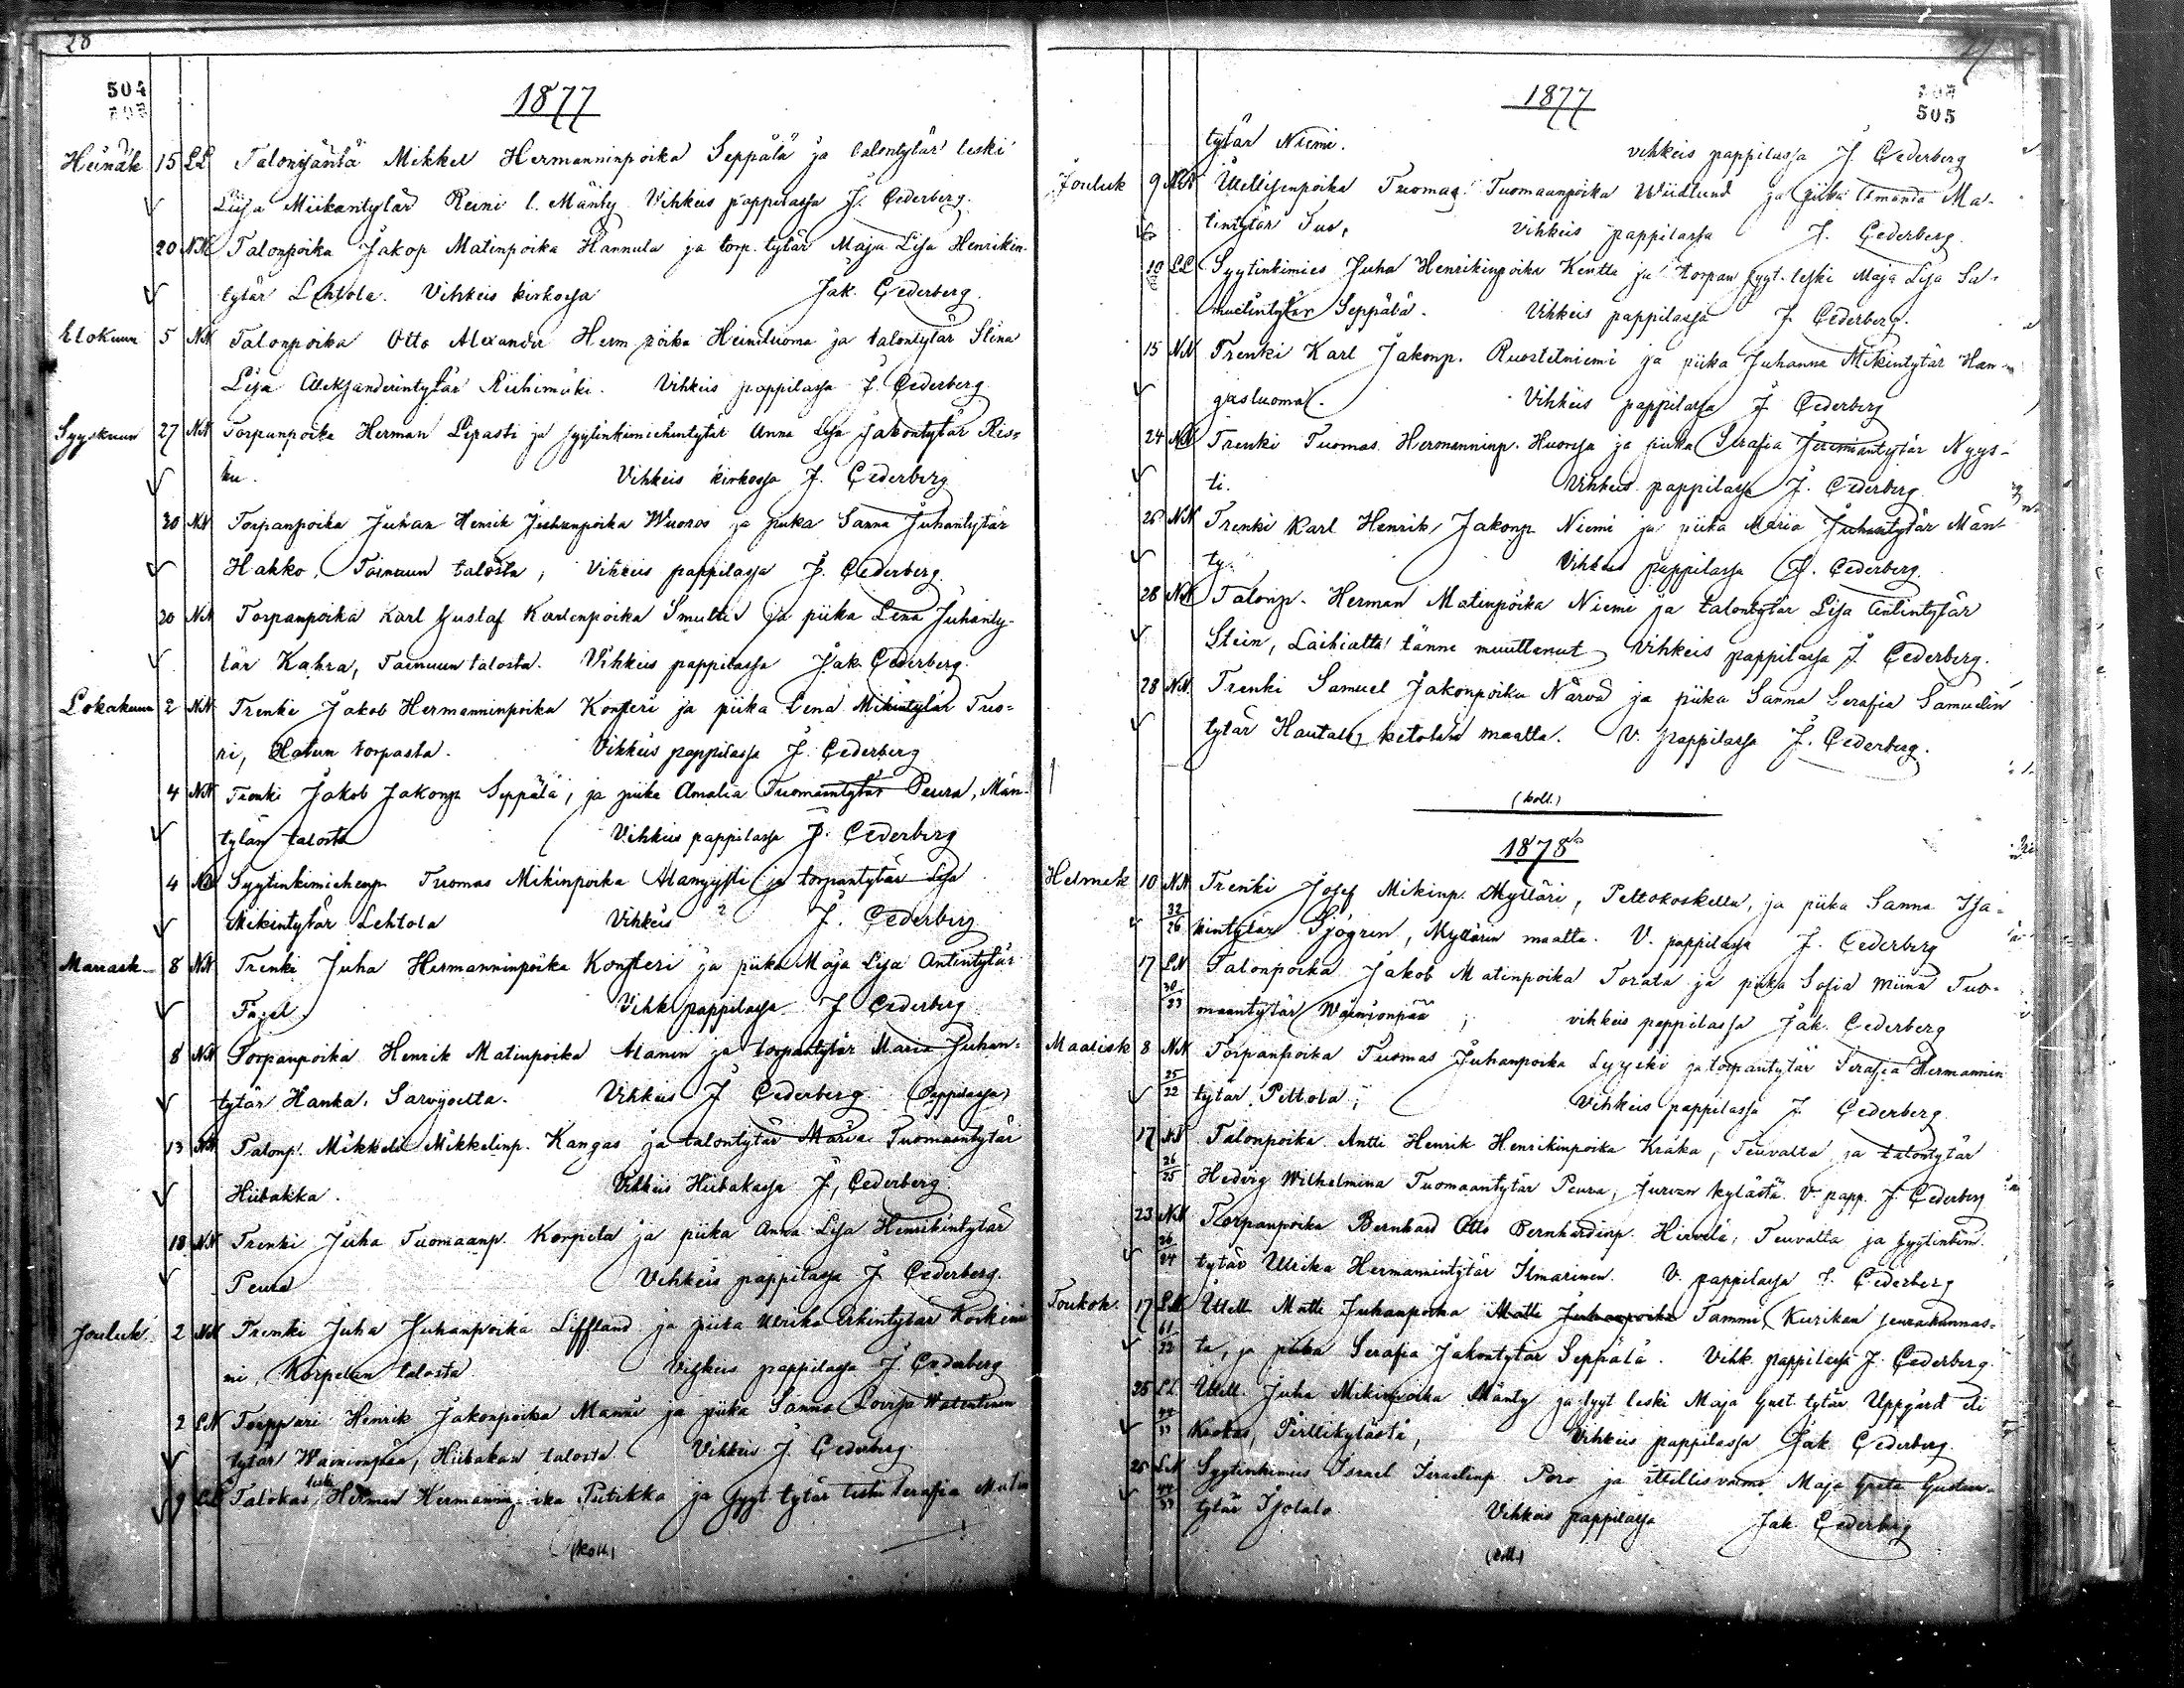 28
504
1877
Heinäk 15 LL Talonisäntä Mikkel Hermanninpoika Seppälä ja talontytär leski
Liisa Miikantytär Reini l. Mänty Vihkeis pappilassa J. Cederberg.
20 NN Talonpoika Jakop Matinpoika Hannula ja torp. tytär Maja Lisa Henrikin-
tytär Lehtola. Vihkeis kirkossa Jak. Cederberg.
Elokuun 5 NN Talonpoika Otto Alexander Herm.poika Heiniluoma ja talontytär Stina
Lisa Aleksanderintytär Riihimäki. Vihkeis pappilassa J. Cederberg
Syyskuun 27 NN Torpanpoika Herman Lepasti ja syytinkimiehentytär Anna Lisa Jakontytär Ris-
ku. Vihkeis kirkossa J. Cederberg
30 NN Torpanpoika Juhan Henrik Juhanpoika Wuoros ja piika Sanna Juhantytär
Hakko, Tainuun talosta, Vihkeis pappilassa J. Cederberg.
30 NN Torpanpoika Karl Gustaf Karlenpoika Smulter ja piika Lena Juhanty-
tär Kahra, Tainuun talosta. Vihkeis pappilassa Jak. Cederberg.
Lokakuun 2 NN Trenki Jakob Hermanninpoika Konsteri ja piika Lena Mikintytär Tuo-
ri, Hatun torpasta. Vihkeis pappilassa J. Cederberg
4 NN Trenki Jakob Jakonp Seppälä, ja piika Amalia Tuomaantytär Peura, Män-
tylän talosta Vihkeis pappilassa J. Cederberg
4 NN Syytinkimiehenp Tuomas Mikinpoika Alanyysti ja torpantytär Lisa
Mikintytär Lehtola Vihkeis ? J. Cederberg
Marrask. 8 NN Trenki Juha Hermanninpoika Konsteri ja piika Maja Lisa Antintytär
Vihk. pappilassa J Cederberg
8 NN Torpanpoika Henrik Matinpoika Alanen ja torpantytär Maria Juhan-
tytär Hanka, Sarvijoelta. Vihkeis J Cederberg (Pappilassa)
13 NN Talonp. Mikkeli Mikkelinp. Kangas ja talontytär Maria Tuomaantytär
Hiibakka. Vihkeis Hiibakassa J, Cederberg.
18 NN Trenki Juha Tuomaanp. Korpela ja piika Anna Lisa Henrikintytär
Peura Vihkeis pappilassa J. Cederberg.
Jouluk. 2 NN Trenki Juha Juhanpoika Liffland ja piika Ulrika Erkintytär Koiki
ni, Korpelan talosta Vihkeis pappilassa J. Cederberg
2 LN Torppari Henrik Jakonpoika Manni ja piika Sanna Lovisa Walentinin
tytär Wainionpää, Hiibakan talosta. Vihkeis J. Cederberg.
9 LL leski Herman Putikka ja syyt. tytär leski Serafia Matin
(koll.)
27
1877
505
tytär Niemi. vihkeis pappilassa J. Cederberg
Jouluk 9 NN Itellisenpoika Tuomas Tuomaanpoika Wiidlund ja piika Amanda Ma-
tintytär Sus, Vihkeis pappilassa J. Cederberg.
10 LL Syytinkimies Juha Henrikinpoika Kentta ja torpan syyt. leski Maja Lisa Sa-
muelintytär Seppälä. Vihkeis pappilassa J. Cederberg.
15 NN Trenki Karl Jakonp. Ruostetniemi ja piika Juhanna Mikintytär Han-
gasluoma. Vihkeis pappilassa J Cederberg
24 NN Trenki Tuomas Hermanninp. Huorsa ja piika Serafia Jeremiantytär Nyys-
ti. Vihkeis pappilassa J. Cederberg
26 NN Trenki Karl Henrik Jakonp Niemi ja piika Maria Juhantytär Män-
ty. Vihkeis pappilassa J. Cederberg.
28 NN Talonp. Herman Matinpoika Niemi ja talontytär Lisa Antintytär
Stein, Laihialta tänne muuttanut Vihkeis pappilassa J Cederberg.
28 NN. Trenki Samuel Jakonpoika Närvä ja piika Sanna Serafia Samuelin
tytär Hautala, Ketolan maalta. V. pappilassa J. Cederberg.
(koll.)
1878
Helmik 10 NN Trenki Josef Mikinp. Mylläri, Peltokoskella, ja piika Sanna Isa-
32/26 kintytär Sjögren, Myllärin maalta. V. pappilassa J. Cederberg
17 LN Talonpoika Jakob Matinpoika Torala ja piika Sofia Miina Tuo-
30/23 maantytär Wainionpää; vihkeis pappilassa Jak. Cederberg
Maalisk 8 NN Torpanpoika Tuomas Juhanpoika Lyyski ja torpantytär Serafia Hermannin
25/22 tytär Peltola; Vihkeis pappilassa J. Cederberg.
17 NN Talonpoika Antti Henrik Henrikinpoika Kråka, Teuvalta ja talontytär
26/25 Hedvig Wilhelmina Tuomaantytär Peura, Jurvan kylästä. V. papp. J. Cederberg
23 NN Torpanpoika Bernhard Otto Bernhardinp. Hirvelä, Teuvalta ja syytinkim.
36/24 tytär Ulrika Hermannintytär Ilmarinen. V. pappilassa J. Cederberg
Toukok. 17 LN Itell. Matti Juhanpoika Matti Juhanpoika Tammi, Kurikan seurakunnas-
61/32 ta, ja piika Serafia Jakontytär Seppälä. Vihk. pappilassa J. Cederberg.
25 LL Itell. Juha Mikinpoika Mänty ja syyt. leski Maja Gust. tytär Uppgård eli
Kaakas, Pirttikylästä, Vihkeis pappilassa Jak Cederberg.
25 LN Syytinkimies Israel Israelinp Poro ja itellisvaimo Maja Greta Gustaa-
tytär Isotalo Vihkeis pappilassa Jak. Cederberg
(koll.)